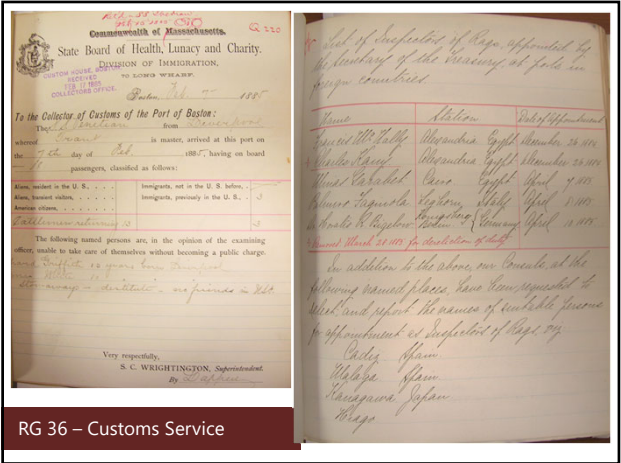 Commonwealth of Massachusetts.
Q 220
State Board of Health, Lunacy and Charity.
DIVISION OF IMMIGRATION,
CUSTOM HOUSE, BOSTON
RECEIVED
FEB 17 1885
COLLECTORS OFFICE.
LONG WHARF.
Boston Feb 1885
To the Collector of Customs of the Port of Boston:
The Venetian from Liverpool
whereof is master, arrived at this port on
the 7th day of Feb. 1885, having on board
11 passengers, classified as follows:
Aliens, resident in the U. S.,
Immigrants, not in the U. S. before,
Aliens, transient visitors,
Immigrants, previously in the U. S., 3
American citizens,
Cattlemen returning 3
The following named persons are, in the opinion of the examining
officer, unable to take care of themselves without becoming a public charge.
Griffith 12 years from Liverpool
stowaways - destitute - no friends in
Very respectfully,
S. C. WRIGHTINGTON, Superintendent.
By
List of Inspectors of Rags, appointed by
the Secretary of the Treasury, at ports in
foreign countries.
Name Station Date of Appointment
Francis McNally Alexandria Egypt December 26 1884
Charles Alexandria Egypt December 26 1884
Cairo Egypt April 7 1885
Leghorn Italy April 8 1885
Horatio R. Bigelow Germany April 10 1885
Removed March 20 1885 for dereliction of duty
In addition to the above, our Consuls, at the
following named places, have been requested to
select and report the names of suitable persons
for appointment as Inspectors of Rags, viz
Cadiz Spain
Malaga Spain
Kanagawa Japan
Hiogo
RG 36 – Customs Service